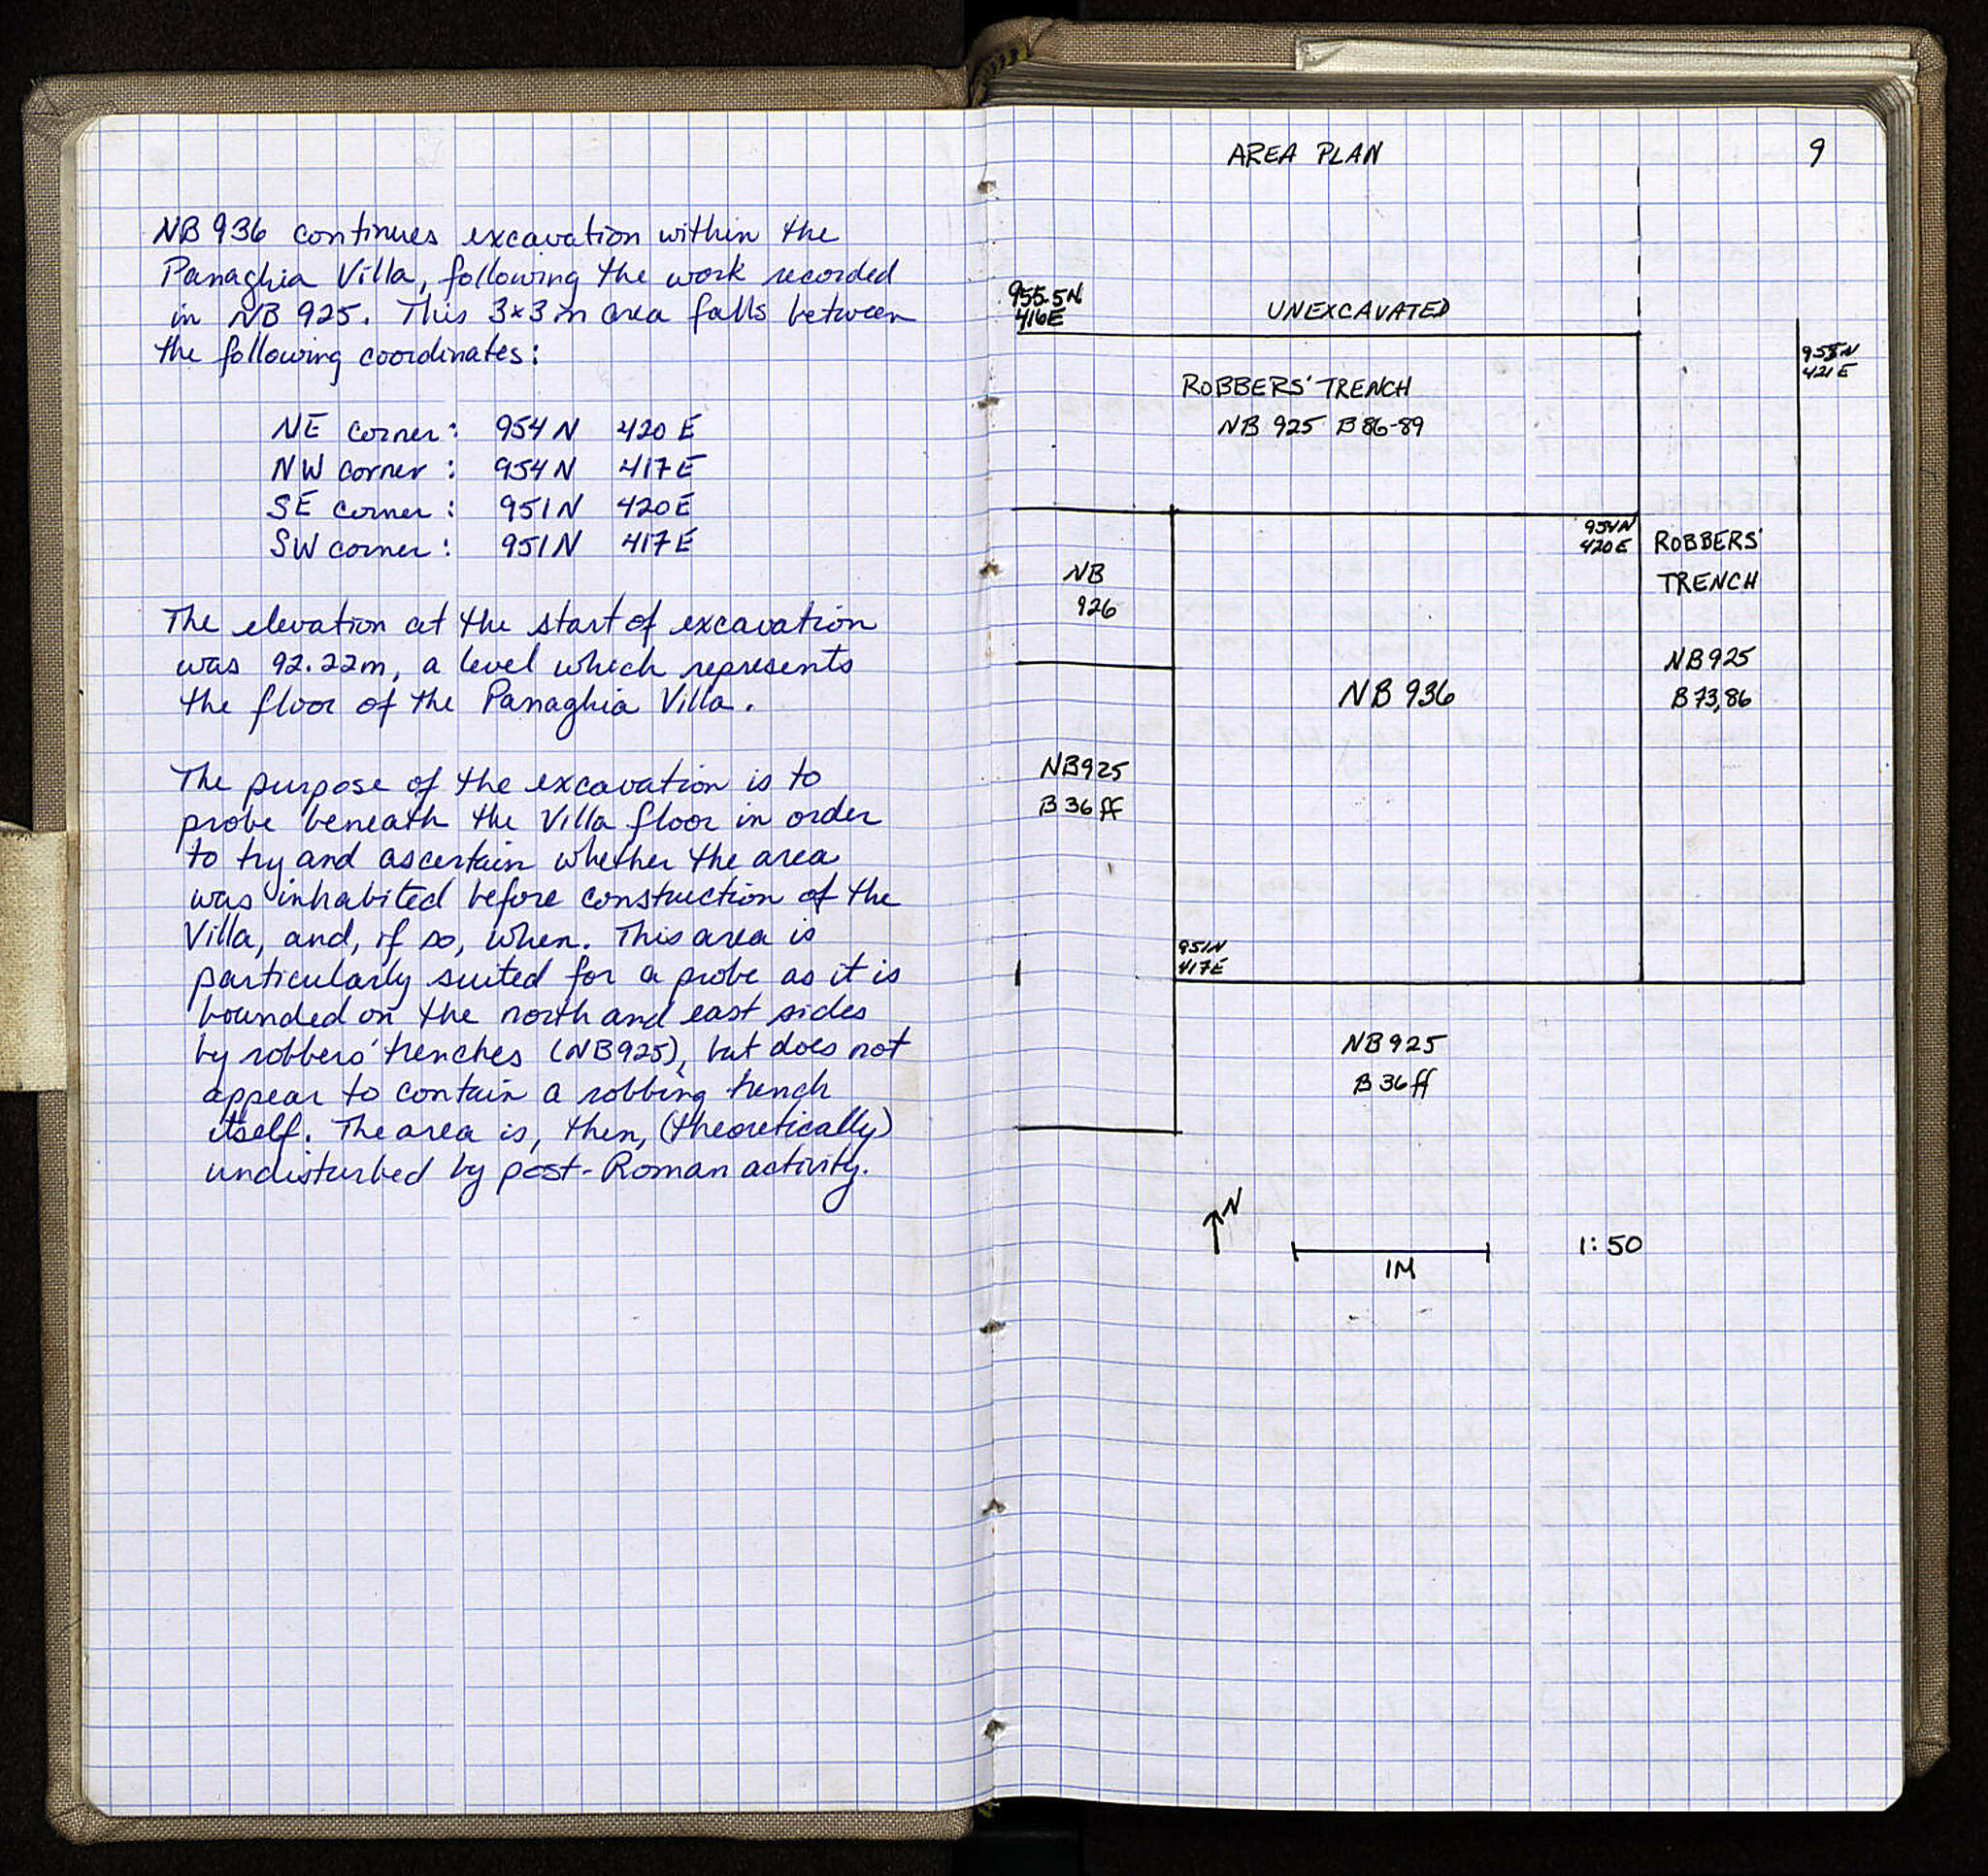 NB 936 continues excavation within the
Panaghia Villa, following the work recorded
in NB 925. This 3x3m area falls between
the following coordinates:
NE corner: 954 N 420 E
NW corner: 954 N 417 E
SE corner: 951 N 420 E
SW corner: 951 N 417 E
The elevation at the start of excavation
was 92.22m, a level which represents
the floor of the Panaghia Villa.
The purpose of the excavation is to
probe beneath the Villa floor in order
to try and ascertain whether the area
was inhabited before construction of the
Villa, and, if so, when. This area is
particularly suited for a probe as it is
bounded on the north and east sides
by robbers' trenches (NB925), but does not
appear to contain a robbing trench
itself. The area is, then, (theoretically)
undisturbed by post-Roman activity.
AREA PLAN
9
955.5N
416E
UNEXCAVATED
421E
ROBBERS' TRENCH
NB 925 B86-89
954N
420E
ROBBERS'
TRENCH
NB
926
NB925
B73,86
NB 936
NB925
B36ff
951N
417E
NB925
B36ff
N
1M
1:50